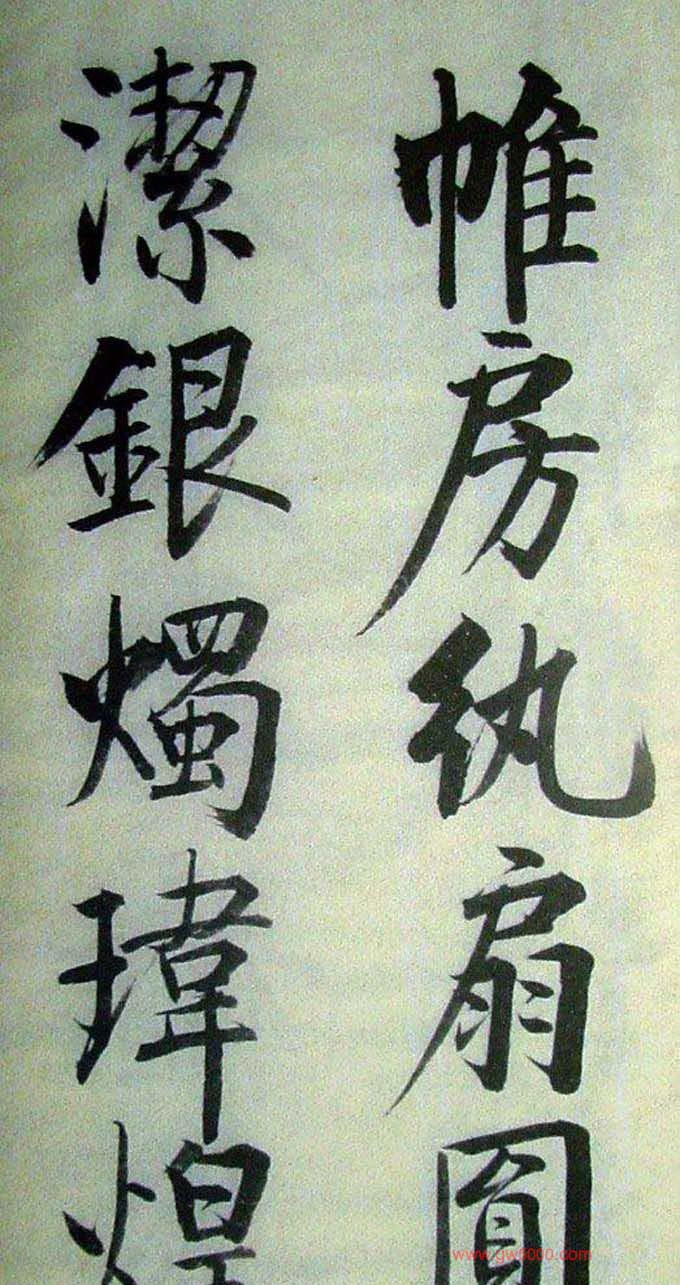 帷房紈扇圓
潔銀燭瑋煌
www.gw8000.com